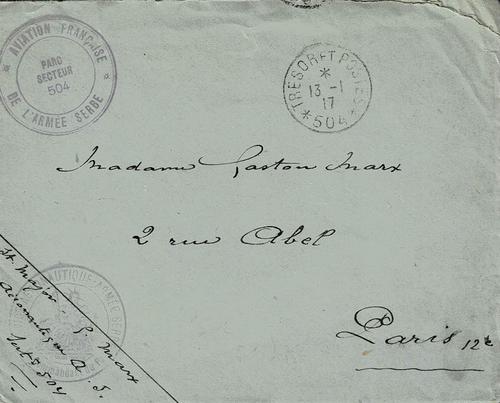 AVIATION FRANÇAISE
PARC
SECTEUR
504
DE L'ARMÉE SERBE
TRESOR ET POSTES
13 -1
17
504
Madame Gaston Marx
2 rue Abel
Paris 12e
Major G. Marx
Aéronautique A. S.
Sect 504